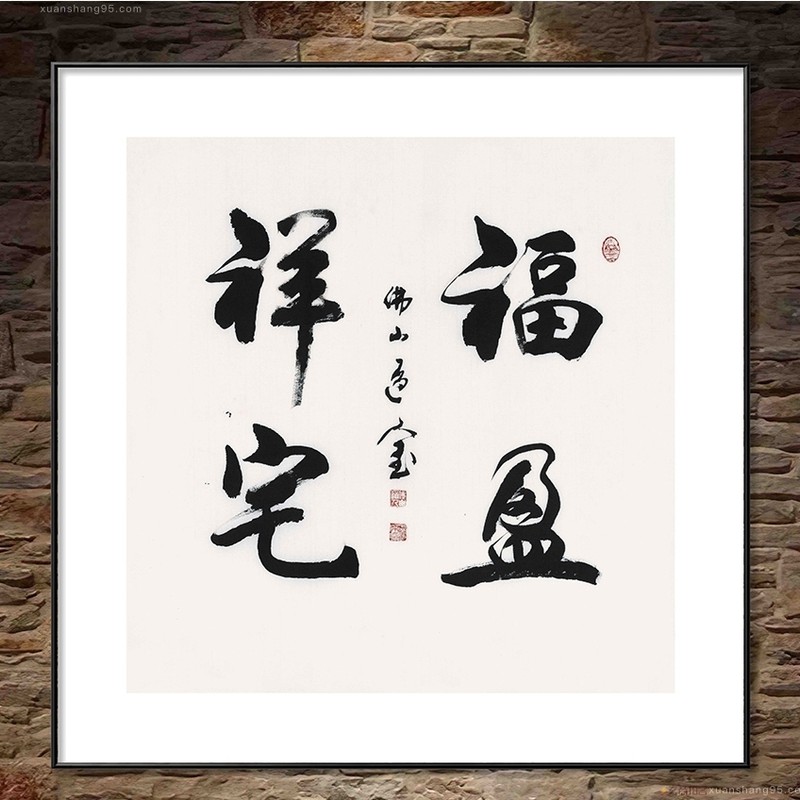 xuanshang95.com
福盈
祥宅
佛山道人宝
xuanshang95.com